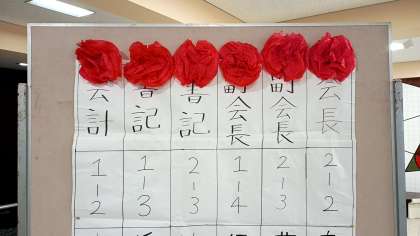 会長
副会長
副会長
書記
書記
会計
2-2
2-3
1-4
2-3
1-3
1-2